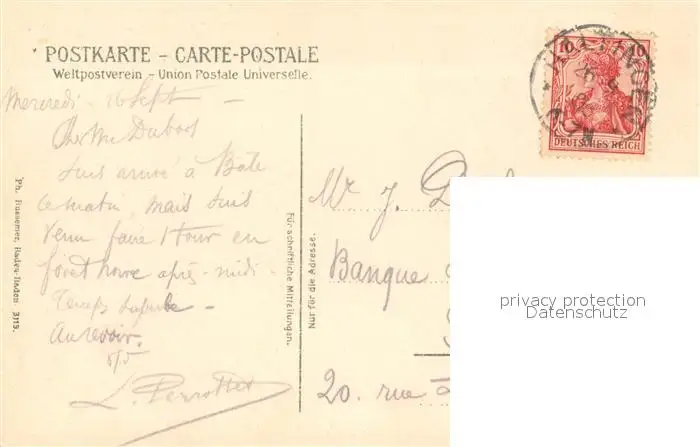 POSTKARTE – CARTE-POSTALE
Weltpostverein – Union Postale Universelle.
Mercredi – 16 Sept –
Cher Mr Dubois
Suis arrivé à Bâle
ce matin, mais suis
venu faire 1 tour en
forêt noire après-midi.
Temps superbe –
Au revoir.
L. Perrottet
Ph. Hussemer, Baden-Baden 3119.
Für schriftliche Mitteilungen.
Nur für die Adresse.
10 10
DEUTSCHES REICH
Mr J. D
Banque
20. rue
privacy protection
Datenschutz